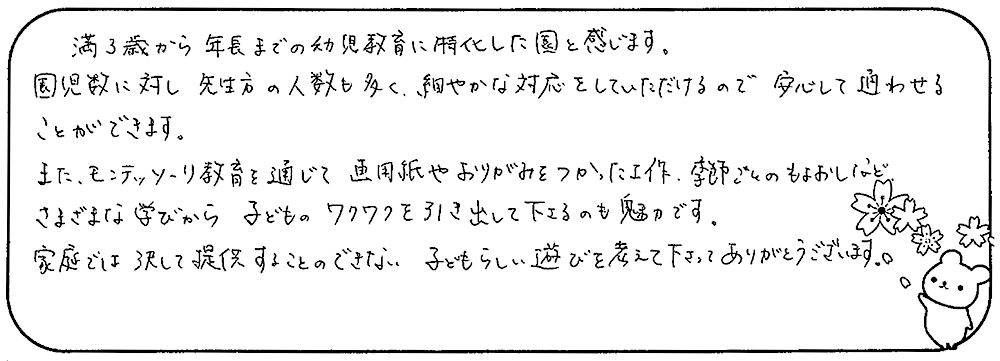 満3歳から年長までの幼児教育に特化した園と感じます。
園児数に対し 先生方の人数も多く、細やかな対応をしていただけるので 安心して通わせる
ことができます。
また、モンテッソーリ教育を通じて 画用紙やおりがみをつかった工作、季節ごとのもよおしなど、
さまざまな学びから 子どものワクワクを引き出して下さるのも魅力です。
家庭では決して提供することのできない 子どもらしい遊びを考えて下さってありがとうございます。